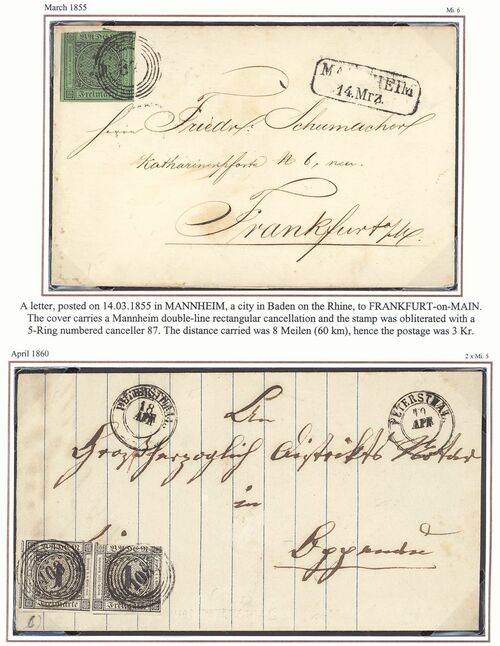 March 1855
Mi. 6
BADEN
Freimarke
MANNHEIM
14.Mrz.
Herrn Friedr. Schumacher
Katharinenpforte N 6, neu.
Frankfurt a/M.
A letter, posted on 14.03.1855 in MANNHEIM, a city in Baden on the Rhine, to FRANKFURT-on-MAIN.
The cover carries a Mannheim double-line rectangular cancellation and the stamp was obliterated with a
5-Ring numbered canceller 87. The distance carried was 8 Meilen (60 km), hence the postage was 3 Kr.
April 1860
2 x Mi. 5
PETERSTHAL
18
APR
PETERSTHAL.
19
APR
Großherzoglich Distrikts Notar
in
BADEN
BADEN
1
1
Freimarke
Freimarke